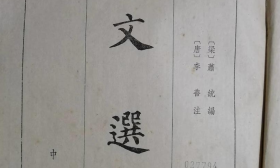 〔梁〕蕭統編
〔唐〕李善注
文選
中